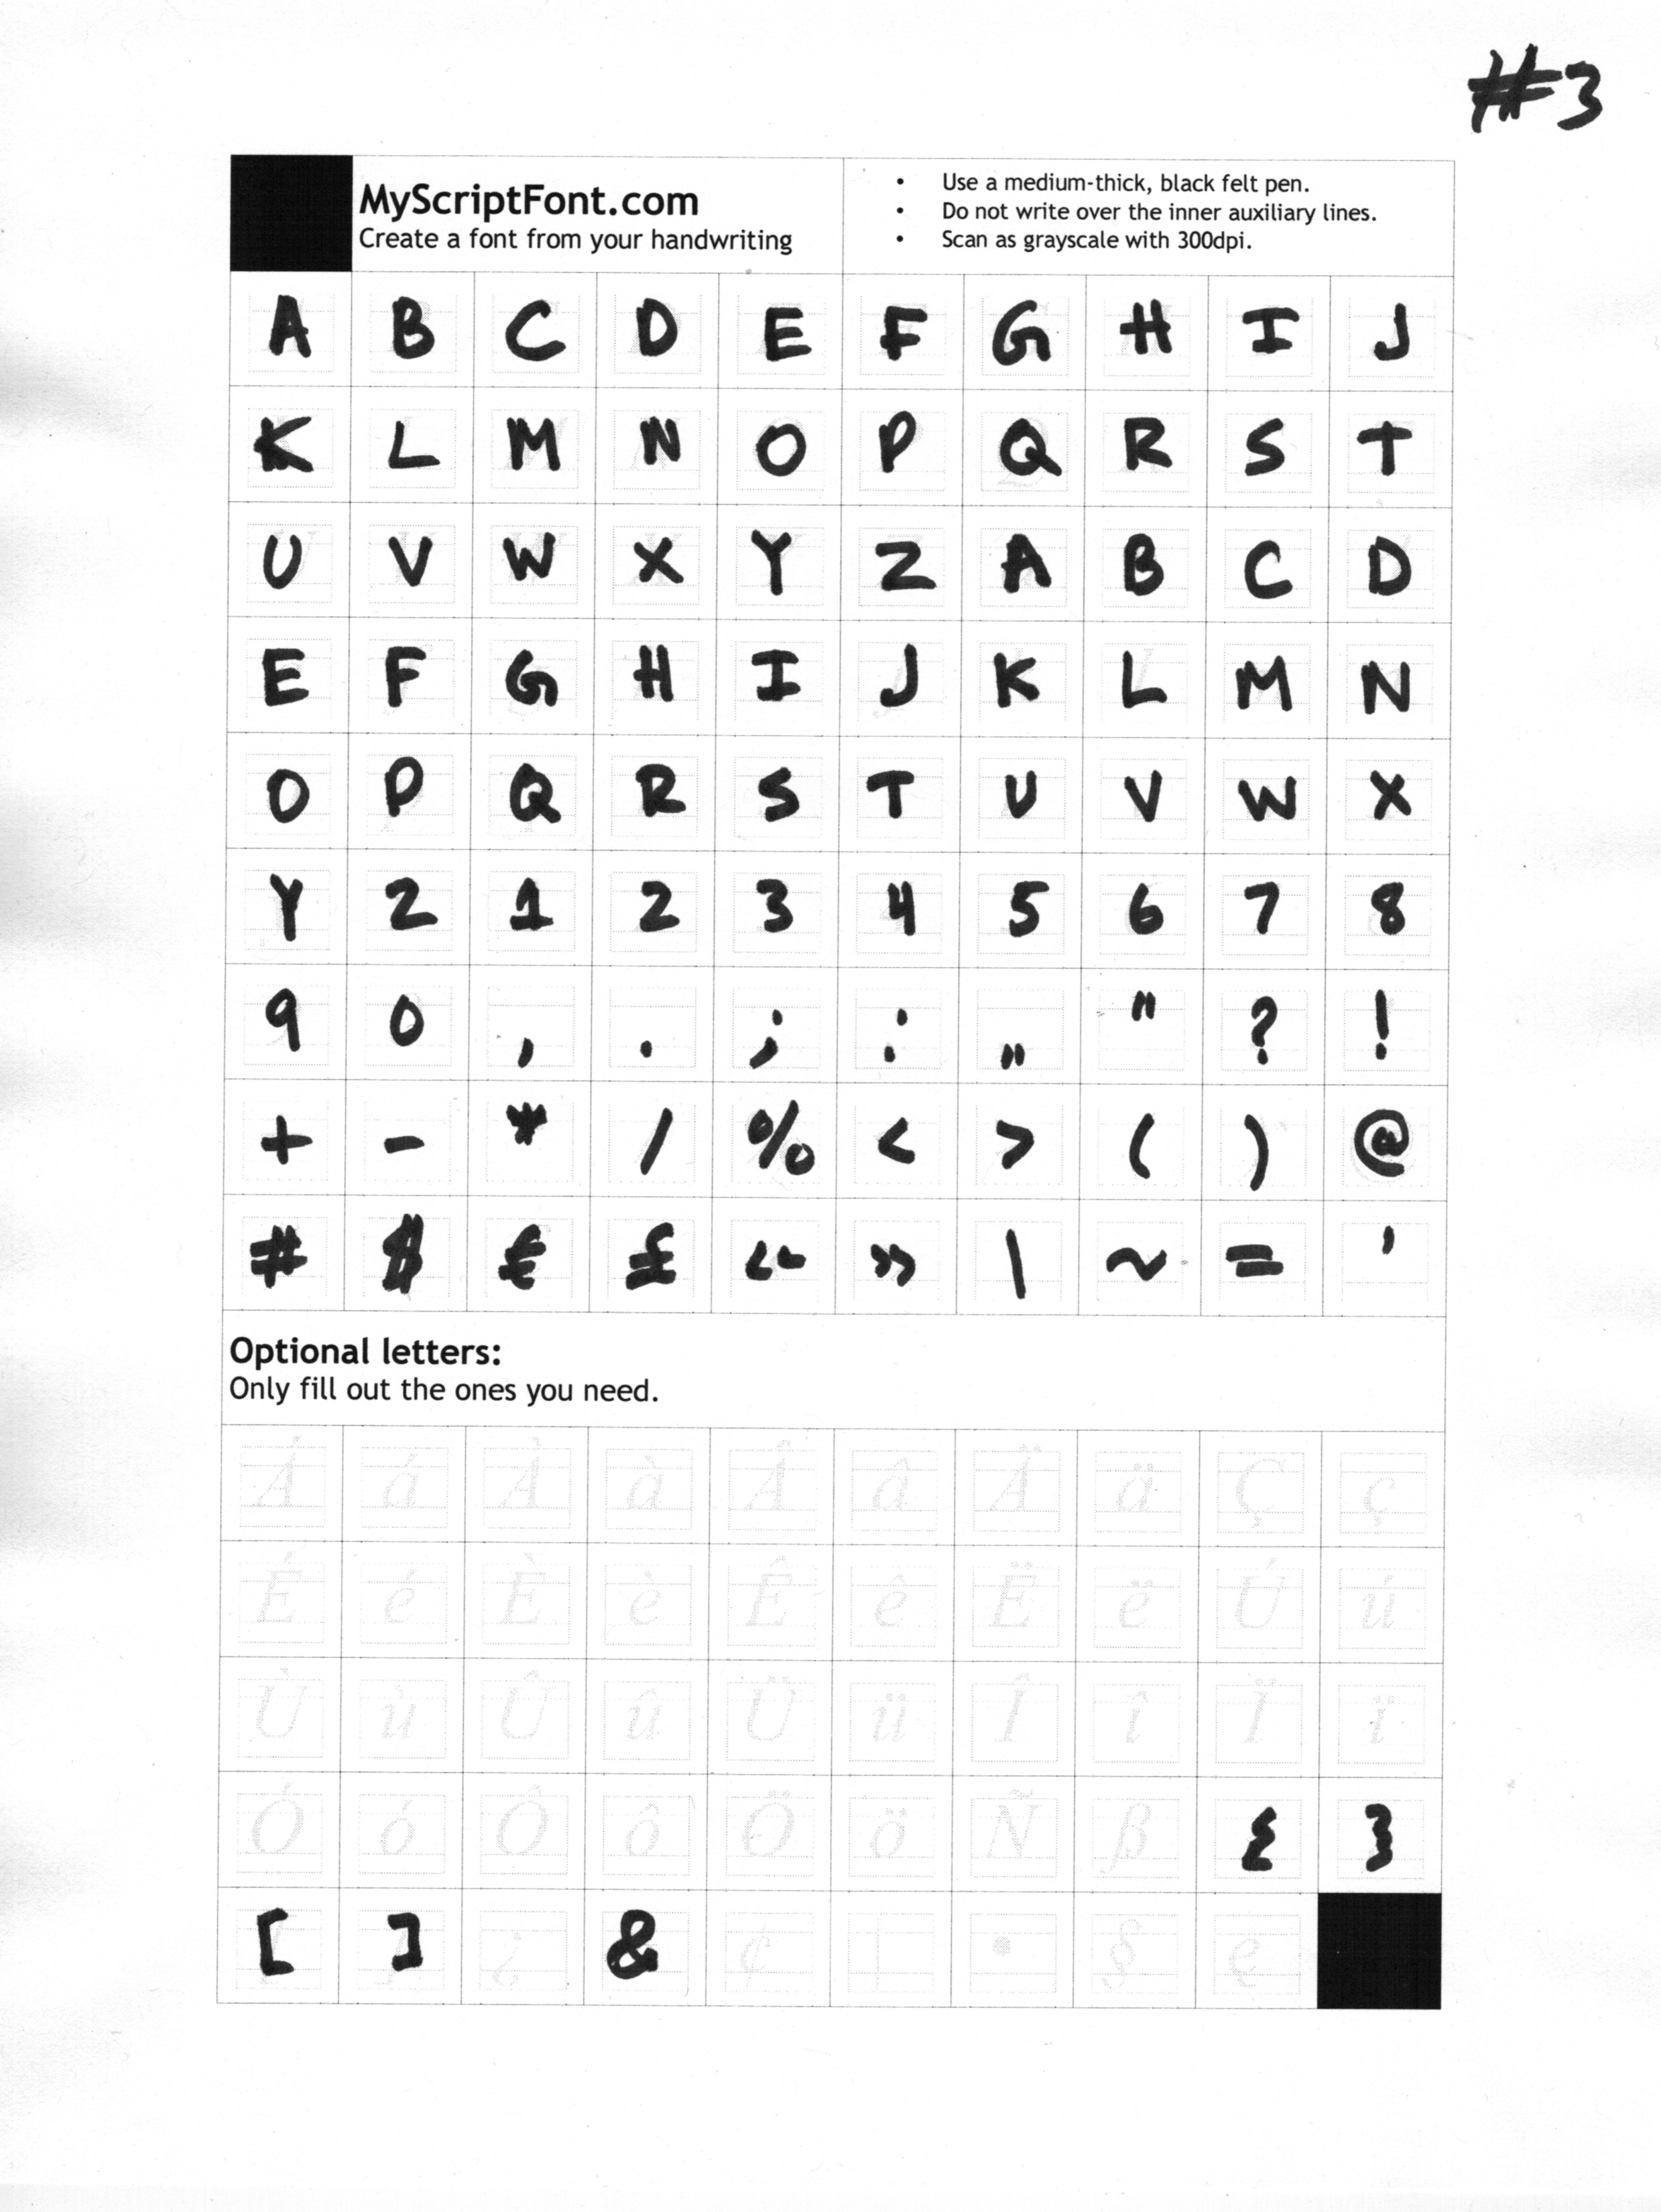 #3
MyScriptFont.com
Create a font from your handwriting
• Use a medium-thick, black felt pen.
• Do not write over the inner auxiliary lines.
• Scan as grayscale with 300dpi.
A B C D E F G H I J
K L M N O P Q R S T
U V W X Y Z A B C D
E F G H I J K L M N
O P Q R S T U V W X
Y Z 1 2 3 4 5 6 7 8
9 0 , . ; : „ " ? !
+ - * / % < > ( ) @
# $ € £ « » \ ~ = '
Optional letters:
Only fill out the ones you need.
Á á À à Â â Ä ä Ç ç
É é È è Ê ê Ë ë Ú ú
Ù ù Û û Ü ü Î î Ï ï
Ó ó Ô ô Ö ö Ñ ß { }
[ ] ¿ & ¢ | • § ę